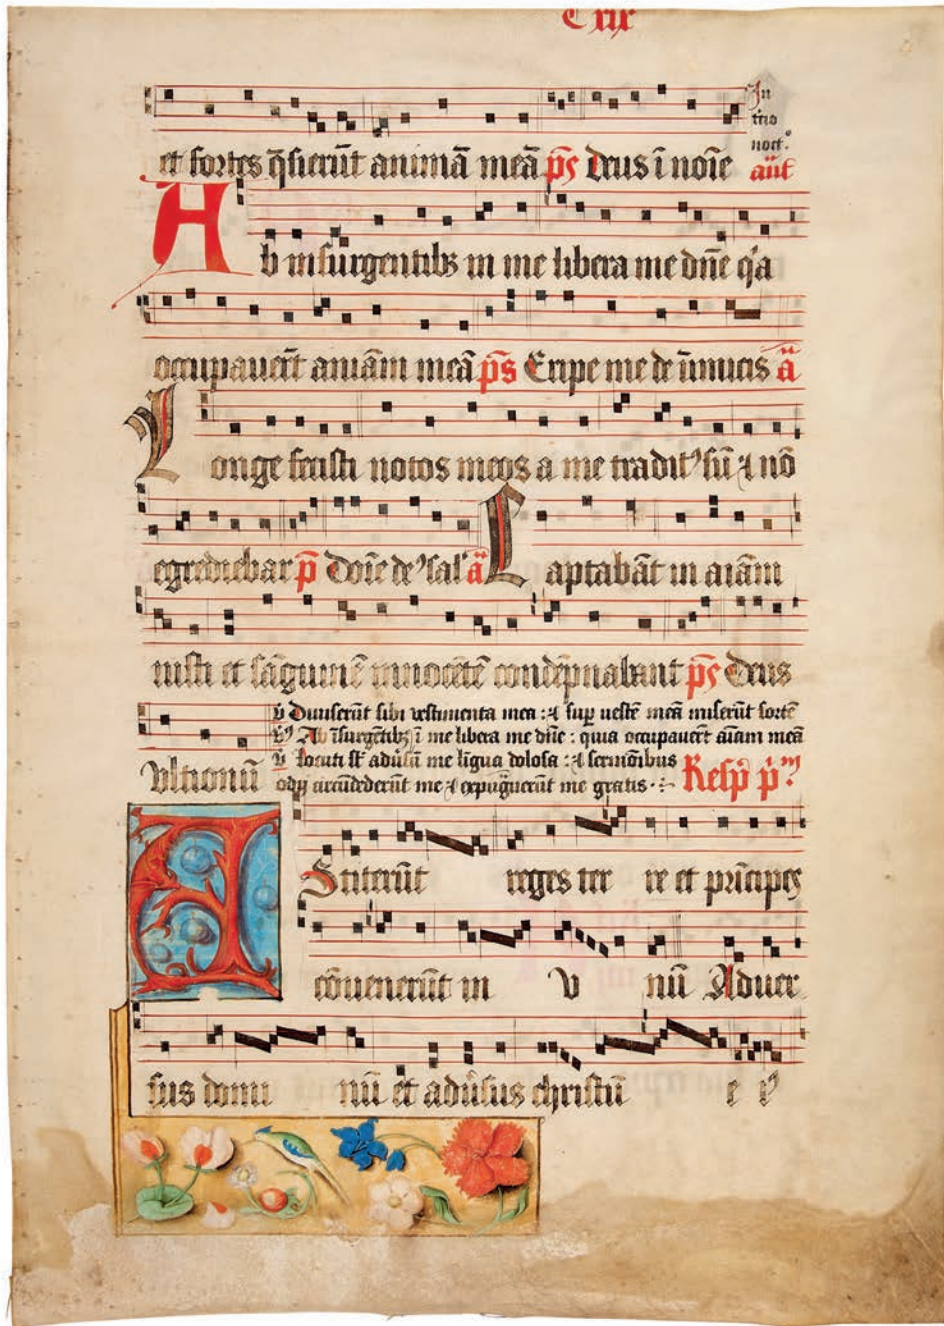 C xix
In
t̄cio
noct.°
et fortes q̄sierūt animā meā p̄s Deus ī noīe an̄t
Ab insurgentibꝫ in me libera me dn̄e qͥa
occupauer̄t aniām meā p̄s Eripe me de īimicis ā
Longe fecisti notos meos a me traditꝰ sū ⁊ nō
egrediebar p̄ Dn̄e deꝰ sal' ā Captabāt in aīam
iusti et sāguinē innocētē condēpnabant p̄s Deus
ultionū
v̄ Diuiserūt sibi vestimenta mea : ⁊ sup̱ uestē meā miserūt sortē
v̄ Ab īsurgētibꝫ ī me libera me dn̄e : quia occupauer̄t aīam meā
v̄ Locuti sū̄t adūsū me līgua dolosa : ⁊ sermōibus
odij circūdederūt me ⁊ expugūerūt me gratis. Resp̄ pͥmᷝ
AStiterūt reges ter re et prīcipes
cōuenerūt in v nū Aduer
sus domi nū et adūsus christū e iꝰ